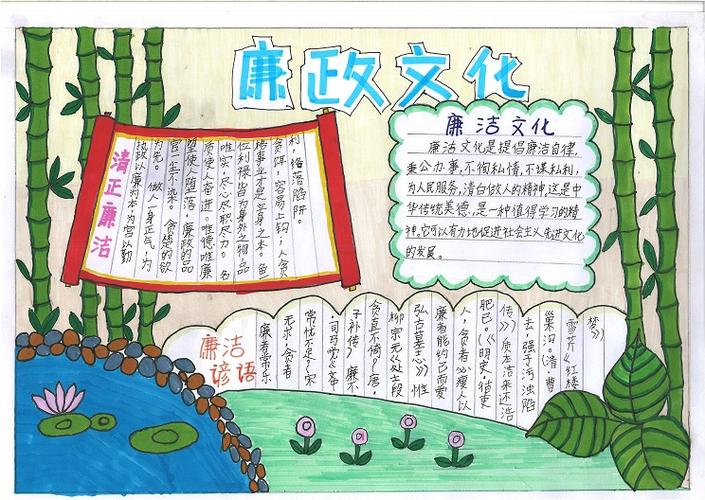 廉政文化
清正廉洁
执政以廉为本,为官以勤
为先。 做人一身正气,为
官一尘不染。 贪婪的欲
望使人堕落,廉政的品
质使人奋进。唯德唯廉
唯实,尽心尽职尽力。名
位利禄皆为身外之物,品
格事业才是立身之本。鱼
贪饵,容易上钩;人贪
利,络落陷阱。
廉洁文化
廉洁文化是提倡廉洁自律,
秉公办事,不徇私情,不谋私利,
为人民服务,清白做人的精神,这是中
华传统美德,是一种值得学习的精
神,它可以有力地促进社会主义先进文化
的发展。
廉洁
谚语
廉者常乐
无求,贪者
常忧不足(宋
·司马光《文中
子补传》 廉不
贪直不倚(唐·
柳宗元处士段
弘古墓志》) 惟
廉者能约己而爱
人,贪者必瘦人以
肥已。(《明史·循吏
传》) 质本洁来还洁
去,强于污浊陷
巢沟(清·曹
雪芹《红楼
梦》)